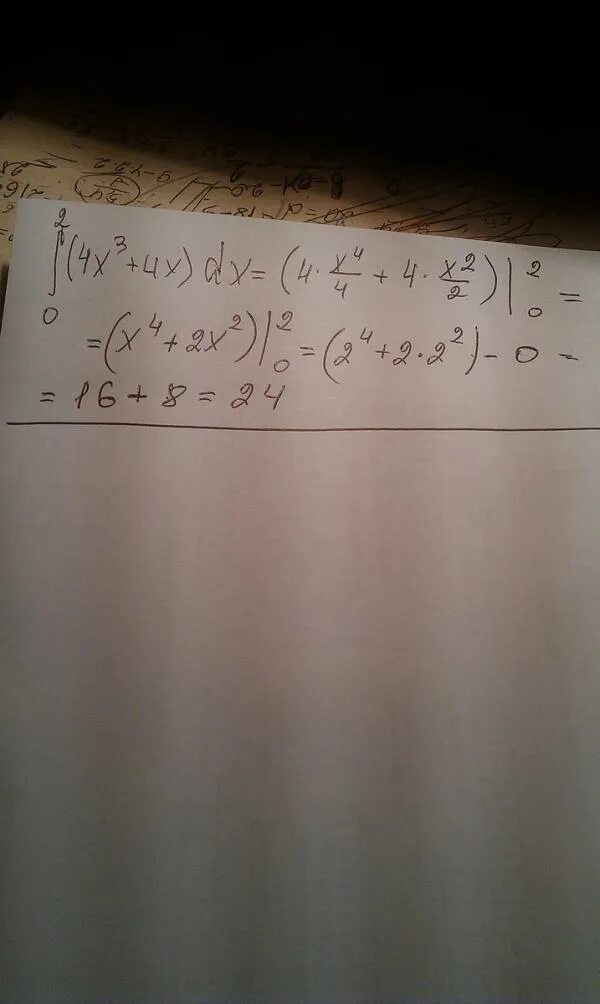 ∫₀² (4x³ + 4x) dx = (4 · x⁴/4 + 4 · x²/2) |₀² =
= (x⁴ + 2x²) |₀² = (2⁴ + 2 · 2²) - 0 =
= 16 + 8 = 24